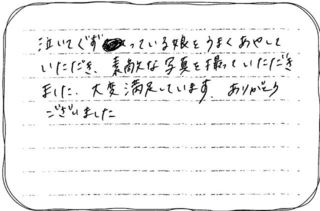 泣いてぐずっている娘をうまくあやして
いただき、素敵な写真を撮っていただき
ました。大変満足しています。ありがとう
ございました